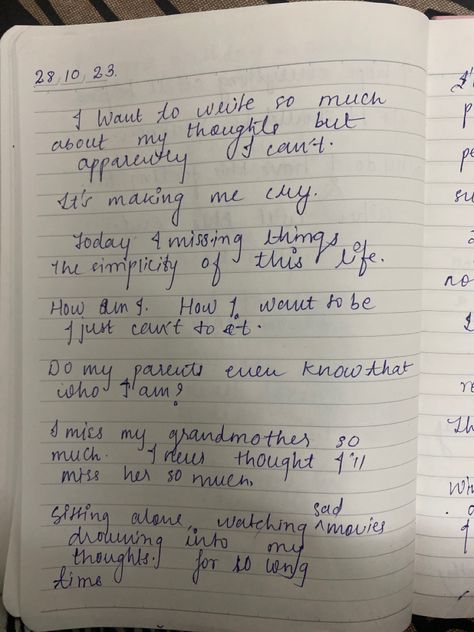 28.10.23.
I want to write so much
about my thoughts but
apparently I can't.
It's making me cry.
Today I missing things
The simplicity of this life.
How am I. How I want to be
I just can't to it.
Do my parents even know that
who I am?
I miss my grandmother so
much. I neus thought I'll
miss her so much.
Sitting alone, watching sad movies
drowning into my
thoughts. for so long
time
I'
p
pe
su
no
I
re
Th
Wh